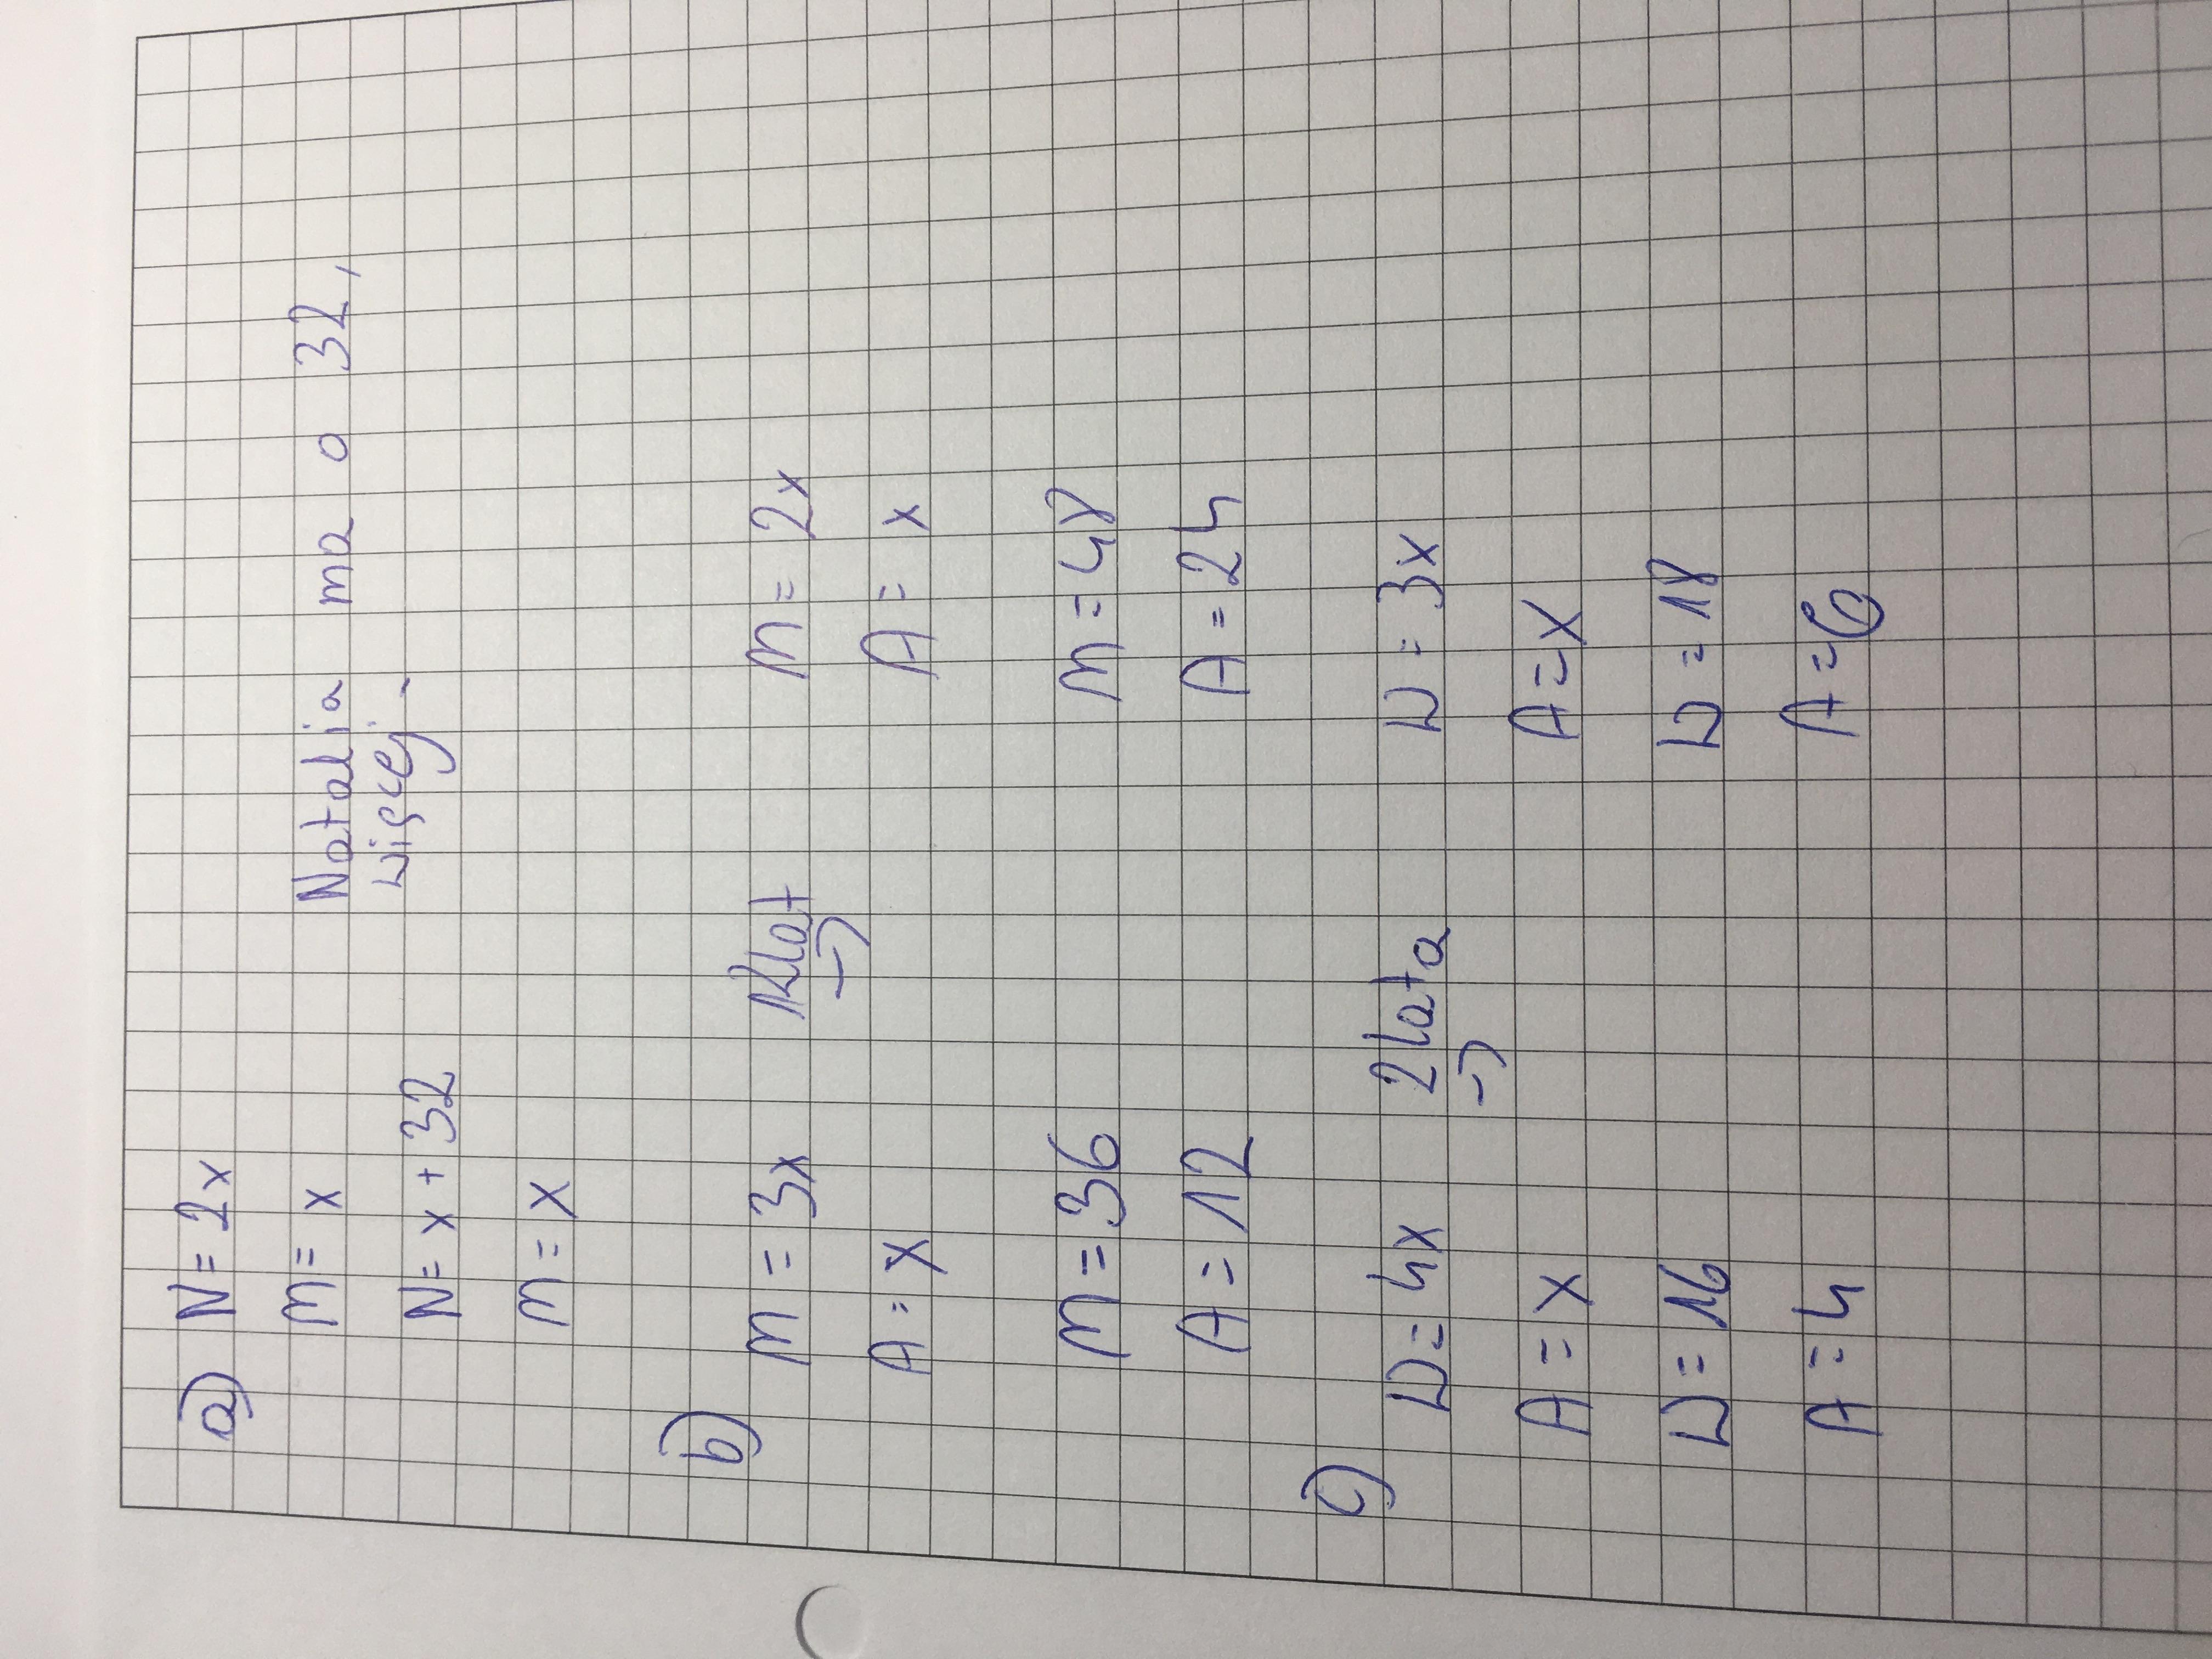 a) N = 2x
m = x
Natalia ma o 32,
więcej.
N = x + 32
m = x
b) m = 3x 12lat → m = 2x
A = x A = x
m = 36 m = 48
A = 12 A = 24
c) W = 4x 2lata → W = 3x
A = x A = x
W = 16 W = 18
A = 4 A = 6